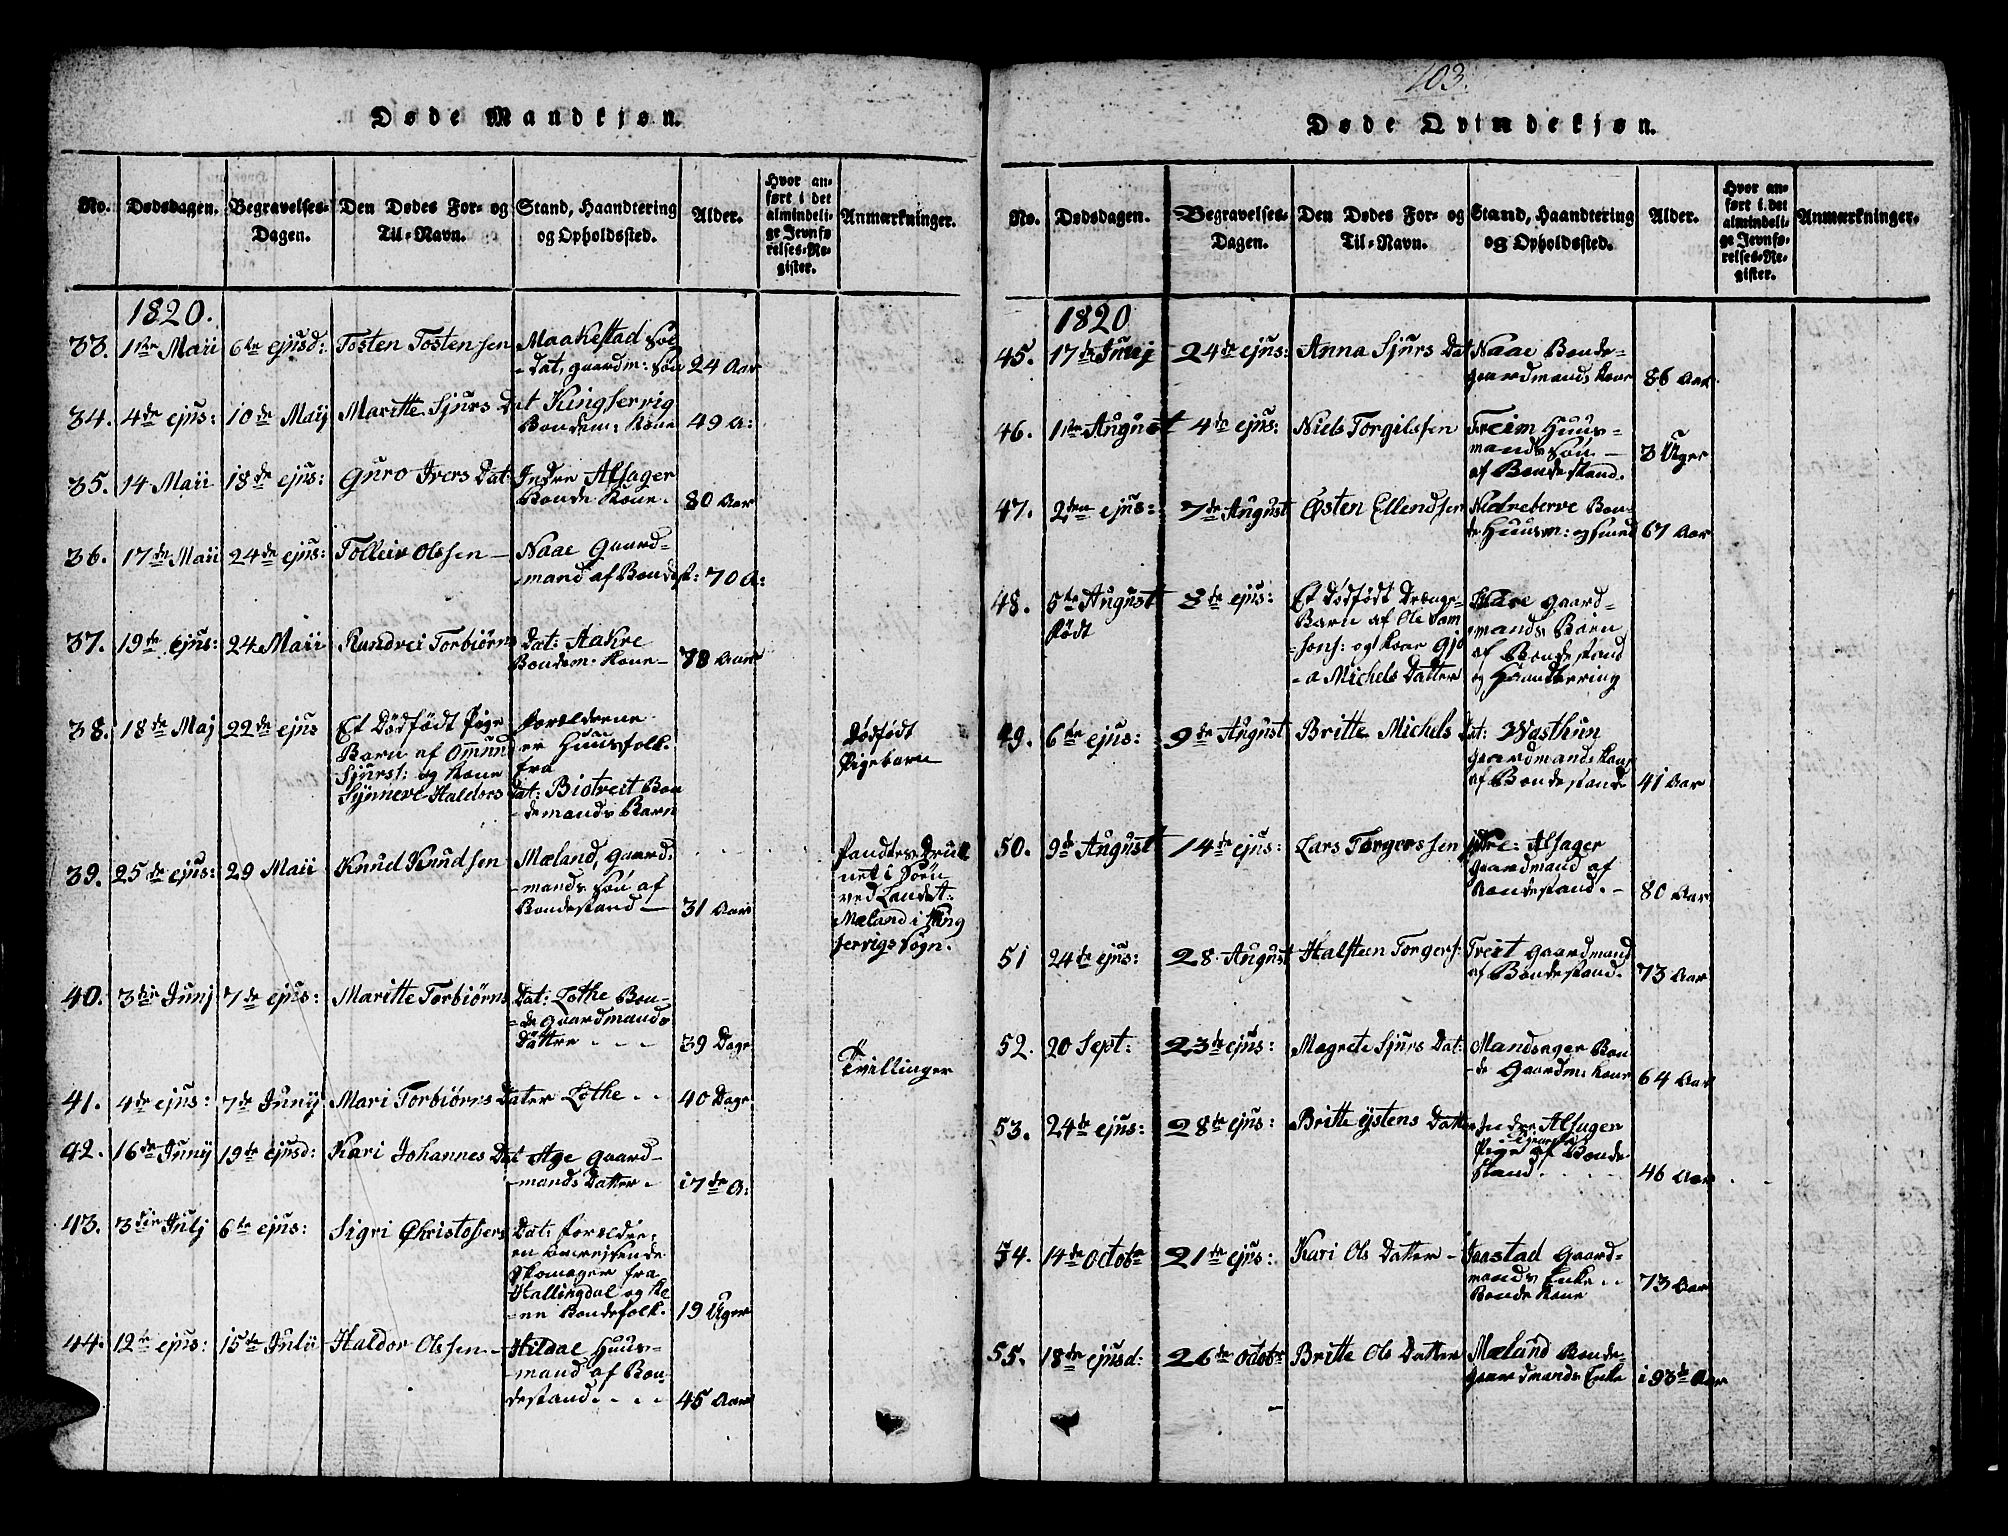 Døde Mandkjøn.
No.
Dødsdagen.
Begravelses-
Dagen.
Den Dødes For- og
Til-Navn.
Stand, Haandtering
og Opholdssted.
Alder.
Hvor an-
ført i det
almindeli-
ge Jevnfø-
relses-Re-
gister.
Anmærkninger.
1820.
33. 1ste Maii 6te ejusd: Tosten Tostensen Maakestad Sol-
dat, gaardm: Søn 24 Aar
34. 4de ejus: 10de Maij Maritte Sjurs Dat Kingservig
Bondem: Kone 49 A:
35. 14 Maii 18de ejus: Guro Ivers Dat: Indre Alsager
Bonde Kone. 80 Aar
36. 17de Maii 24de ejus: Tolleiv Olssen – Naae Gaard-
mand af Bondest: 70 A:
37. 19de ejus: 24 Maii Randvei Torbiørns Dat: Aakre
Bondem: Kone – Aar
38. 18de Maj 22de ejus Et Dødfødt Pige Forældrene
Barn af Omund er Huusfolk
Sjurs: og Kone fra
Synneve Haldors Dat: Biotveit Bon
demands Barn
Dødfødt
Pigebarn
39. 25de ejus: 29 Maii Knud Knudsen Mæland, Gaard-
mands Søn af
Bondestand – 31 Aar
Fandtes Druk
net i Søen
ved Landet:
Mæland i King
servigs Sogn.
40. 3die Junj 7de ejus: Maritte Torbiørns Dat: Lothe Bon-
de Gaardmands
Datter 39 Dage
Tvillinger
41. 4de ejus: 7de Juny Mari Torbiørns Datter Lothe 40 Dage
42. 16de Juny 19de ejusd: Kari Johannes Dat Age Gaard-
mands Datter. 17de A:
43. 3die Julj 6te ejus: Sigri Christofers Dat: Forældre:
en omreisende
Skomager fra
Hallingdal og Ko
ne Bondefolk. 19 Uger
44. 12te ejus: 15te Julii Haldor Olssen – Hildal Huus-
mand af Bon-
destand. 45 Aar
103.
Døde Qvindekjøn.
No.
Dødsdagen.
Begravelses-
Dagen.
Den Dødes For- og
Til-Navn.
Stand, Haandtering
og Opholdssted.
Alder.
Hvor an-
ført i det
almindeli-
ge Jevnfø-
relses-Re-
gister.
Anmærkninger.
1820
45. 17de Junj 24de ejus: Anna Sjurs Dat Naae Bonde-
gaardmands Kone 86 Aar.
46. 1ste August 4de ejus: Niels Torgilssen Freim Huus-
mands Søn –
af Bondestand. 3 Uger
47. 2den ejus: 7de August Østen Ellendsen Nedreberve Bon-
de Huusm: og Smed 67 Aar
48. 5te August 8de ejus: Et Dødfødt Drenge- Gaard-
Født Barn af Ole Sam mands Barn
sons: og Kone Gjo af Bondestand
a Michels Datter og Haandterring
49. 6te ejus: 9de August Britte Michels Dat: Wasthun
Gaardmands Kone
af Bondestande 41 Aar
50. 9de August 14de ejus: Lars Torgerssen Alsager
Gaardmand af
Bondestand. – 80 Aar
51 24de ejus: 28 August Halsteen Torgers: Treit Gaardmand
af Bondestand. 73 Aar
52. 20 Sept: 23de ejus: Magrete Sjurs Dat: Mandsager Bon
de Gaardm: Kone 64 Aar
53. 24de ejus: 28de ejus: Britte Østens Datter Indre Alsager
Pige af Bonde
Stand. 46 Aar
54. 14de Octobr 21de ejus: Kari Ols Datter – Jaastad Gaard-
mands Enke
Bonde Kone 73 Aar
55. 18de ejusd: 26de Octobr. Britte Ols Datter Mæland Bonde-
gaardmands Enke i 93de Aar